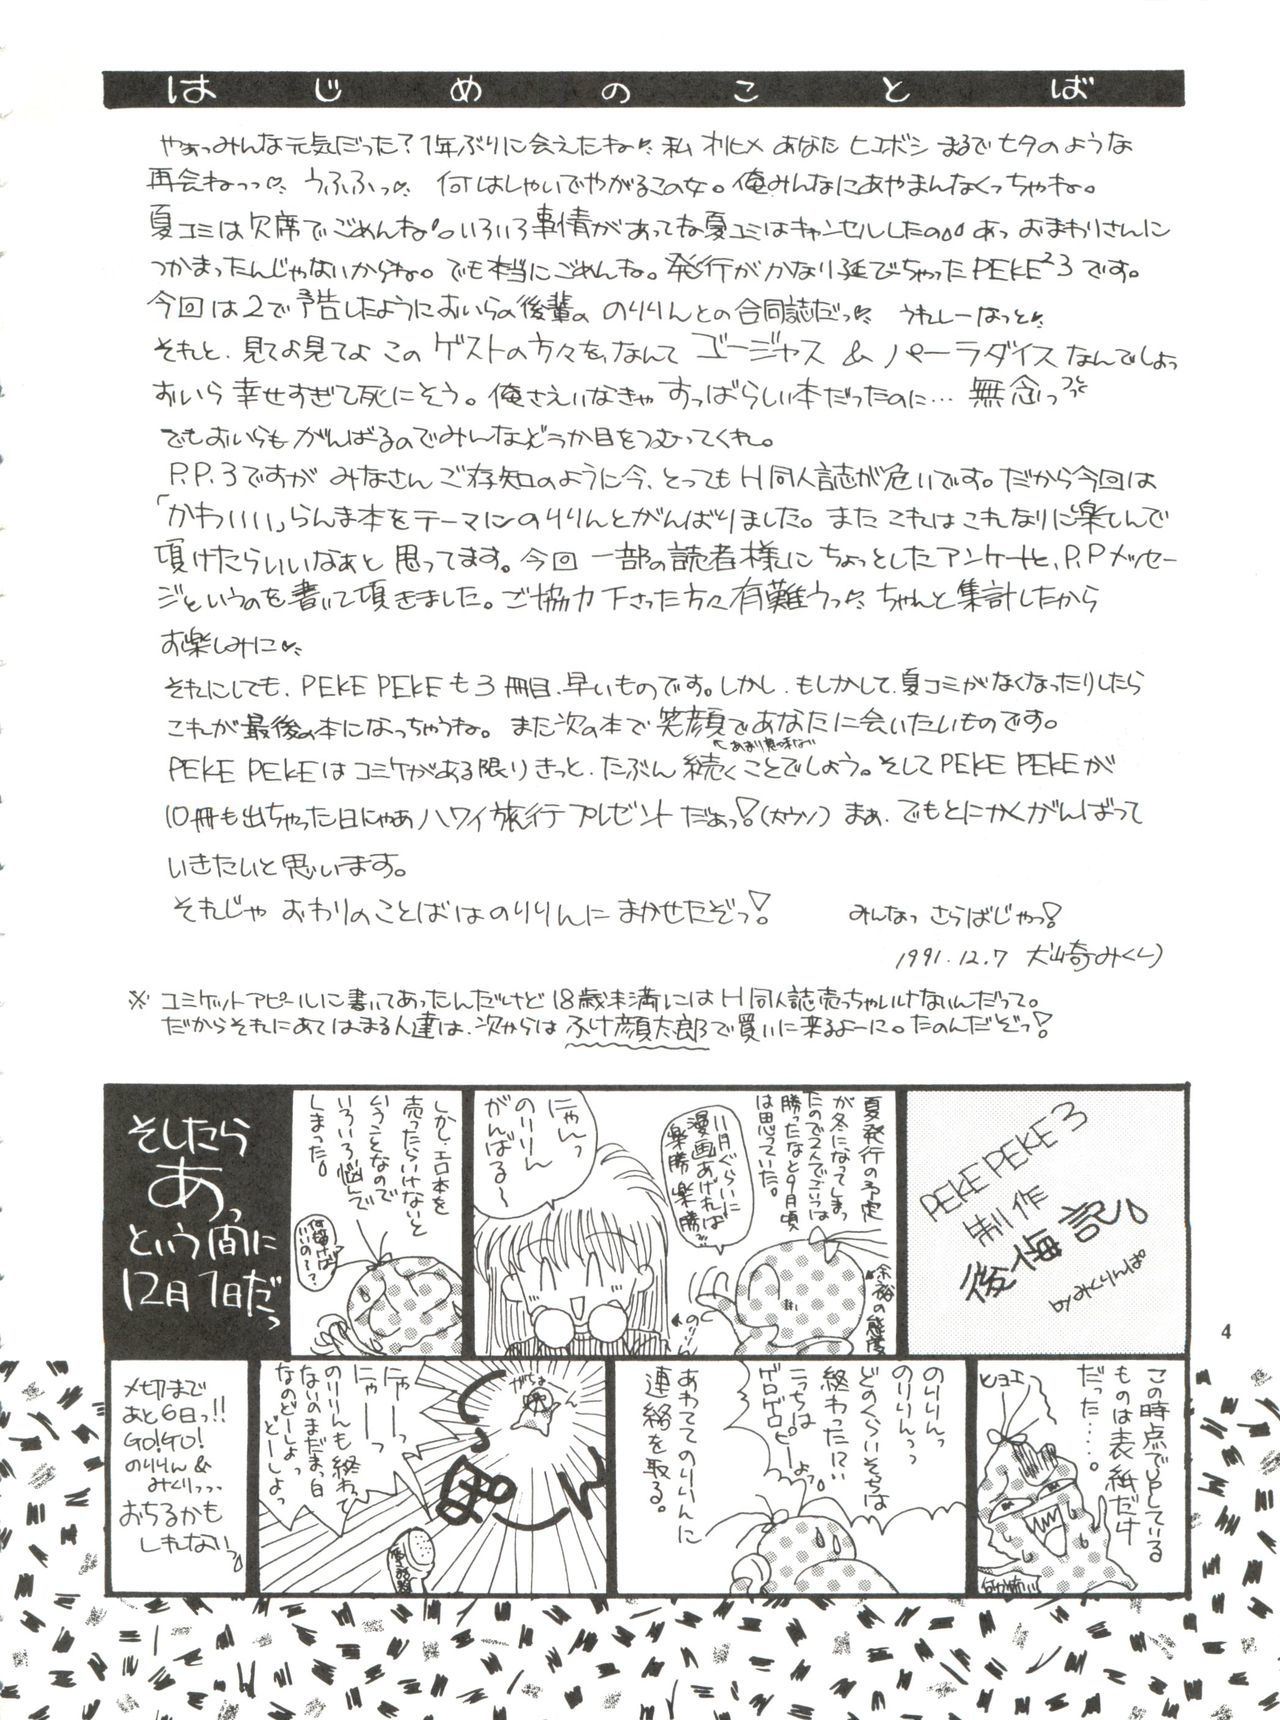 はじめのことば
やぁっみんな元気だった？1年ぶりに会えたね 私 オリヒメ あなた ヒコボシ まるで七夕のような
再会ねっっ うふふっ 何はしゃいでやがるこの女。俺みんなにあやまんなくっちゃね。
夏コミは欠席でごめんね。いろいろ事情があってな夏コミはキャンセルしたの あっ おまわりさんに
つかまったんじゃないからね。でも本当にごめんね。発行がかなり延びちゃったPEKE²3です。
今回は2で予告したようにおいらの後輩の のりりんとの合同誌だっ うれしーなっと
それと、見てよ見てよ この ゲストの方々を、なんて ゴージャス & パーラダイス なんでしょっ
おいら 幸せすぎて死にそう。俺さえいなきゃ すっばらしい本だったのに… 無念っっっ
でもおいらも がんばるのでみんなどうか目をつむってくれ。
P.P.3ですが みなさん ご存知のように今、とってもH同人誌が危いです。だから今回は
「かわいい」らんま本をテーマにのりりんとがんばりました。また これは これなりに楽しんで
頂けたらいいなぁと 思ってます。今回 一部の読者様に ちょっとしたアンケートと、P.Pメッセー
ジというのを 書いて頂きました。ご協力下さった方々 有難うっ ちゃんと集計したから
お楽しみに
それにしても、PEKE PEKEも3冊目、早いものです。しかし、もしかして、夏コミがなくなったりしたら
これが最後の本になっちゃうね。また次の本で笑顔であなたに会いたいものです。
←あまり意味ない
PEKE PEKEはコミケがある限りきっと、たぶん 続くことでしょう。そしてPEKE PEKEが
10冊も出ちゃった日にゃあ ハワイ旅行 プレゼント だぁっ！(大ウソ) まぁ、でもとにかくがんばって
いきたいと思います。
それじゃ おわりのことばはのりりんに まかせたぞっ！ みんなっ さらばじゃっ！
1991.12.7 犬崎みくり
※ コミケットアピールに書いてあったんだけど 18歳未満にはH同人誌売っちゃいけないんだって。
だからそれにあてはまる人達は、次からは ふけ顔太郎で買いに来るよーに。たのんだぞっ！
PEKE PEKE 3
制作
後悔記
by みくりんぱ
夏発行の予定
が冬になってしまっ
たので2人でごいつは
勝ったなと9月頃
は思っていた。
余裕の態度
11月ぐらいに
漫画あげれば
楽勝楽勝
のりりん
にゃんっ
のりりん
がんばる〜
しかし、エロ本を
売ったらいけないと
いうことなので
いろいろ悩んで
しまった。
何描けば
いいの〜？
そしたら
あっ
という間に
12月1日だっ
この時点でUPしている
ものは表紙だけ
だった……。
ヒョエ
何か怖い
のりりんっ
のりりんっ
どのくらいそちらは
終わったにい
こっちは
ゲロゲロピーよっ
あわててのりりんに
連絡を取る。
がちょ
にゃーっ
にゃーーっ
のりりんも終わって
ないのまだまっ白
なのどーしよっ
どーしよっ
〆切まで
あと6日っ!!
GO!GO!
のりりん&
みくりっっっ
おちるかも
しれないっ
4